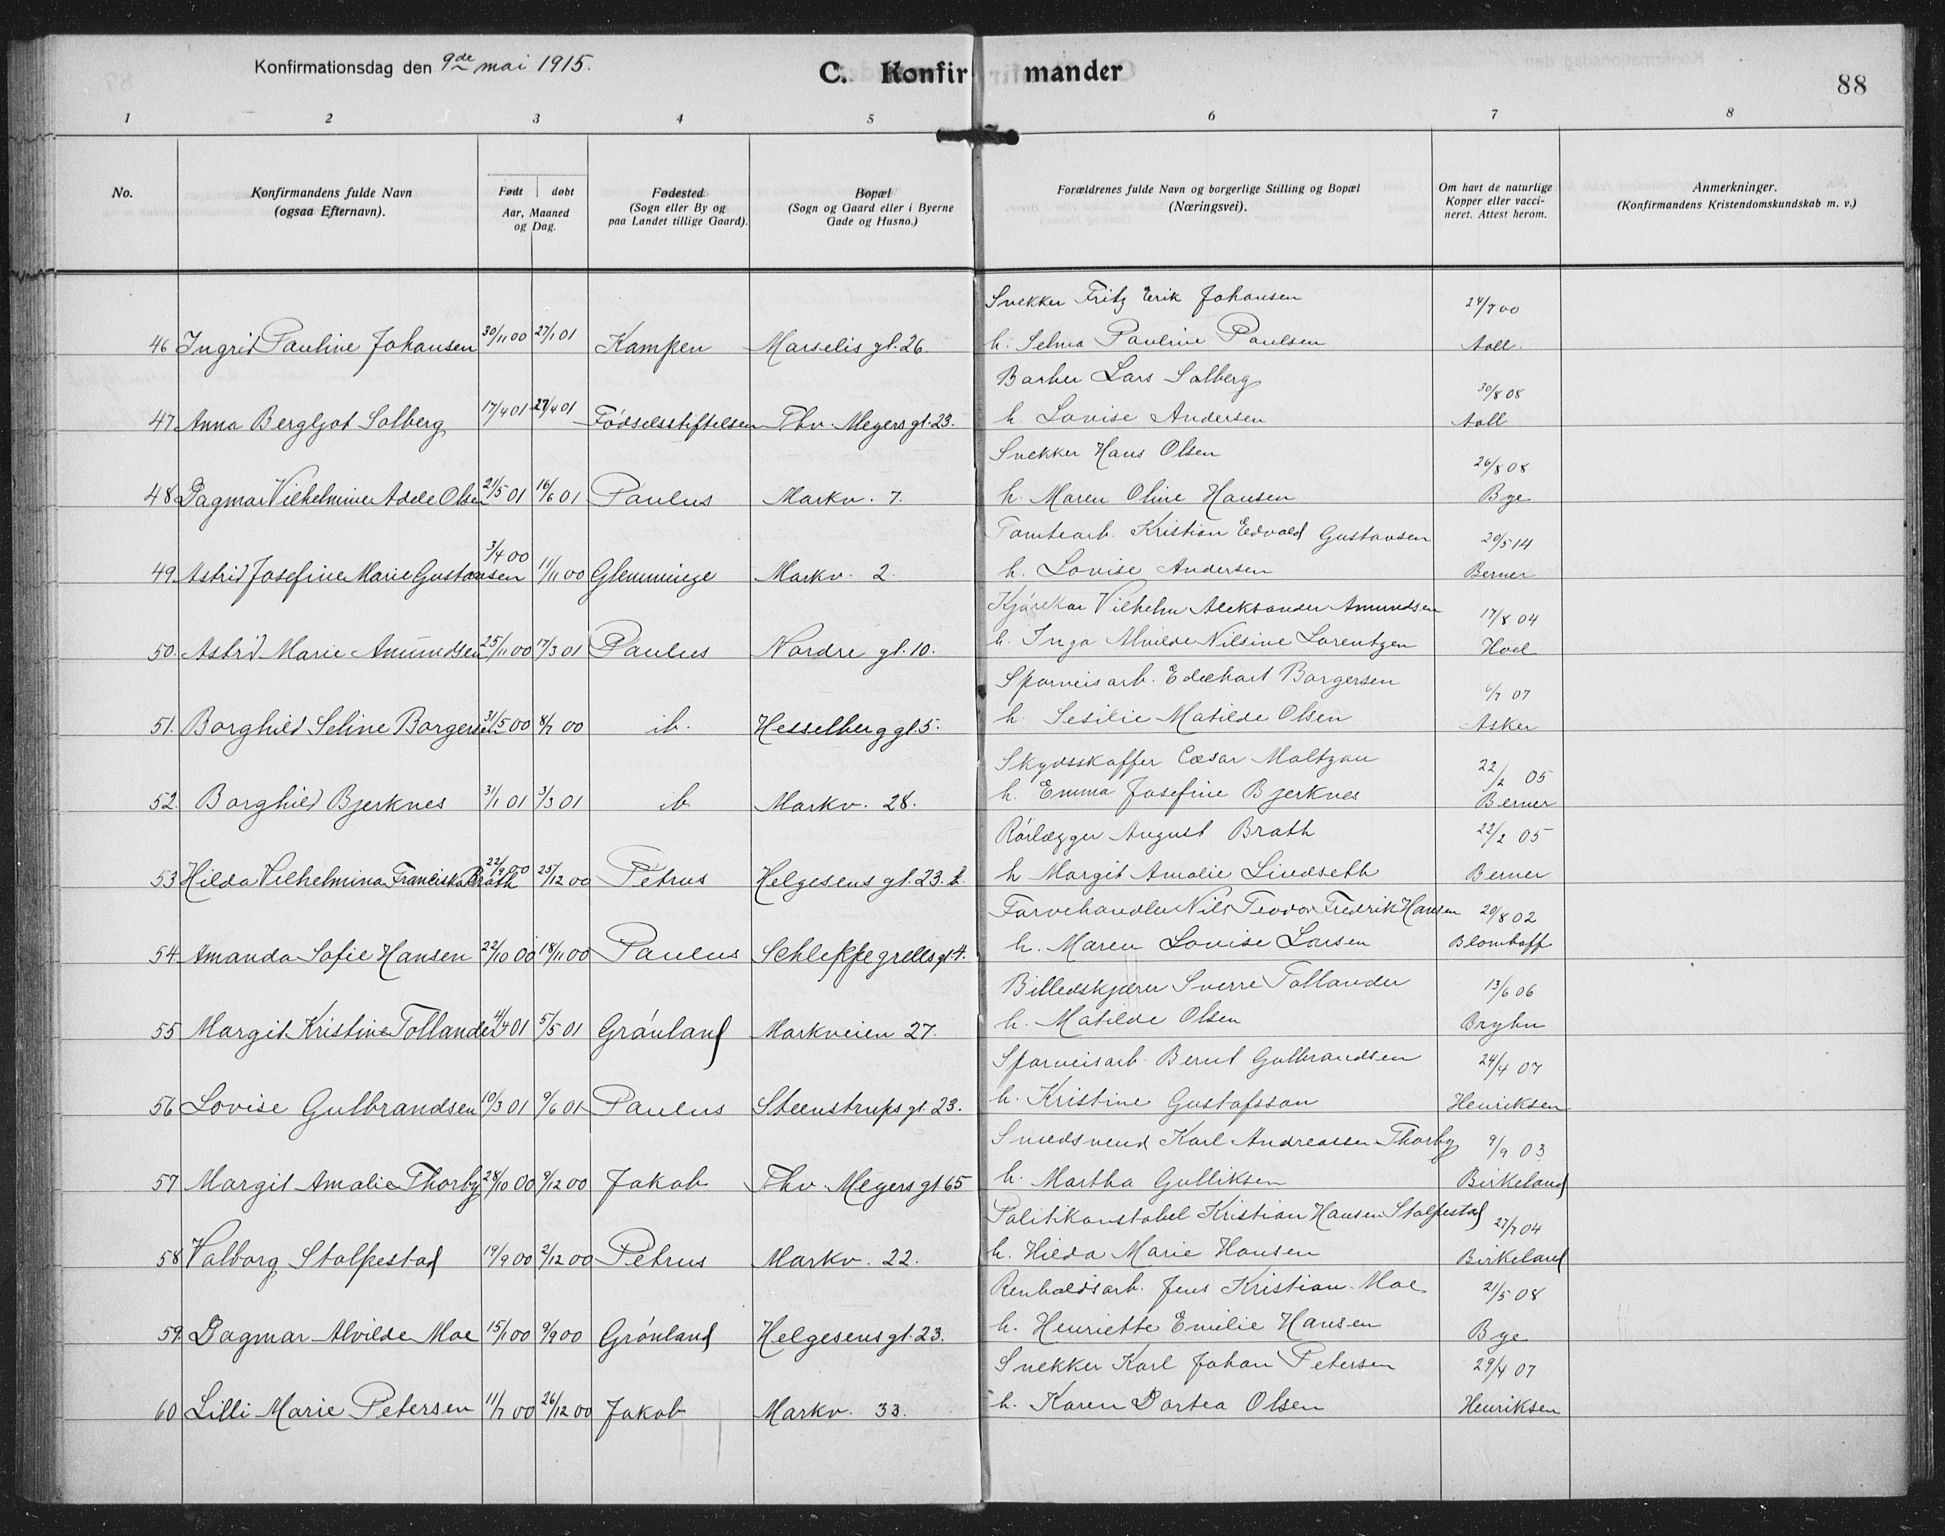 Konfirmationsdag den 9de mai 1915.
C. Konfirmander
88
1 2 3 4 5 6 7 8
No.
Konfirmandens fulde Navn
(ogsaa Efternavn).
Født | døbt
Aar, Maaned
og Dag.
Fødested
(Sogn eller By og
paa Landet tillige Gaard).
Bopæl
(Sogn og Gaard eller i Byerne
Gade og Husno.)
Forældrenes fulde Navn og borgerlige Stilling og Bopæl
(Næringsvei).
Om havt de naturlige
Kopper eller vacci-
neret. Attest herom.
Anmerkninger.
(Konfirmandens Kristendomskundskab m. v.)
Snekker Fritz Erik Johansen 24/7 00
46 Ingrid Pauline Johansen 30/11 00 27/1 01 Kampen Marselis gt. 26. h. Selma Pauline Paulsen Aall.
Barber Lars Solberg 30/8 08
47 Anna Bergljot Solberg 17/4 01 27/4 01 Fødselsstiftelsen Thv. Meyers gt. 23. h. Lovise Andersen Aall
Snekker Hans Olsen 26/8 08
48 Dagmar Vilhelmine Adele Olsen 21/5 01 16/6 01 Paulus Markv. 7. h. Maren Oline Hansen Bye
Tomtearb. Kristian Edvald Gustavsen 20/5 14
49 Astrid Josefine Marie Gustavsen 3/4 00 11/11 00 Glemminge Markv. 2. h. Lovise Andersen Berner
Kjørekar Vilhelm Aleksander Amundsen 17/8 04
50. Astrid Marie Amundsen 25/11 00 17/3 01 Paulus Nordre gt. 10. h. Inga Alvilde Nilsine Lorentzen Hoel
Sporveisarb. Edehart Borgersen 6/7 07
51. Borghild Seline Borgersen 31/5 00 8/7 00 ib. Hesselberg gt. 5. h. Sesilie Matilde Olsen Asker
Skydsskaffer Cæsar Maltzau 22/2 05
52. Borghild Bjerknes 31/1 01 3/3 01 ib Markv. 28. h. Emma Josefine Bjerknes Berner
Rørlægger August Brath 22/2 05
53 Hilda Vilhelmina Franciska Brath 22/9 00 25/12 00 Petrus Helgesens gt. 23. b. h Margit Amalie Lindseth Berner
Farvehandler Nils Teodor Fredrik Hansen 20/8 02
54 Amanda Sofie Hansen 22/10 00 18/11 00 Paulus Schleppegrells gt 4. h. Maren Lovise Larsen Blomhoff
Billedskjærer Sverre Tollander 13/6 06
55 Margit Kristine Tollander 4/4 01 5/5 01 Grønland Markveien 27. h. Matilde Olsen Bryhn
Sporveisarb. Bernt Gulbrandsen 24/4 07
56 Lovise Gulbrandsen 10/3 01 9/6 01 Paulus Steenstrups gt. 23. h. Kristine Gustafsson Henriksen
Smedsvend Karl Andreassen Thorby 9/9 03
57 Margit Amalie Thorby 28/10 00 9/12 00 Jakob Thv. Meyers gt 65 h. Martha Gulliksen Birkeland
Politikonstabel Kristian Hansen Stolpestad 27/7 04
58 Valborg Stolpestad 19/9 00 2/12 00 Petrus Markv. 22. h. Hilda Marie Hansen Birkeland
Renholdsarb. Jens Kristian Moe 21/5 08
59. Dagmar Alvilde Moe 15/1 00 9/9 00 Grønland Helgesens gt. 23. h. Henriette Emilie Hansen Bye
Snekker Karl Johan Petersen 29/4 07
60 Lilli Marie Petersen 11/7 00 26/12 00 Jakob Markv. 33. h. Karen Dortea Olsen Henriksen